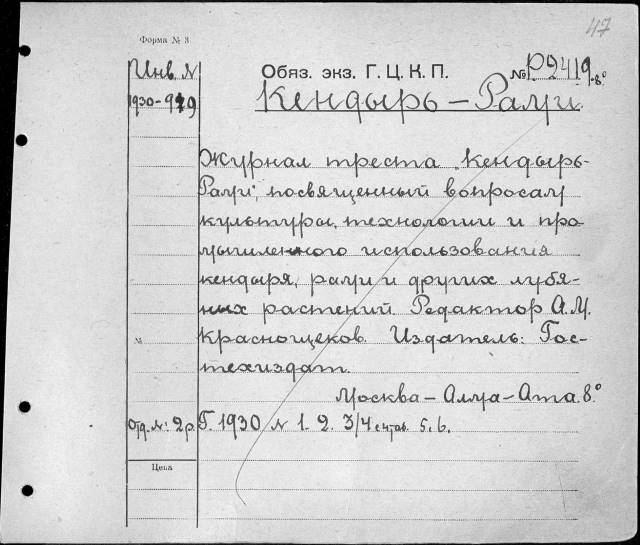 47
Форма № 3
Инв. N
Обяз. экз. Г. Ц. К. П.
№ Р2419.8°
1930-979
Кендырь – Рами.
Журнал треста „Кендырь-
Рами", посвященный вопросам
культуры, технологии и про-
мышленного использования
кендыря, рами и других лубя-
ных растений. Редактор А.М.
Краснощеков. Издатель: Гос-
№
техиздат.
Москва – Алма-Ата. 8.°
Отд. №: 2 р.
Г. 1930 N 1. 2. 3/4 5. 6.
Цена